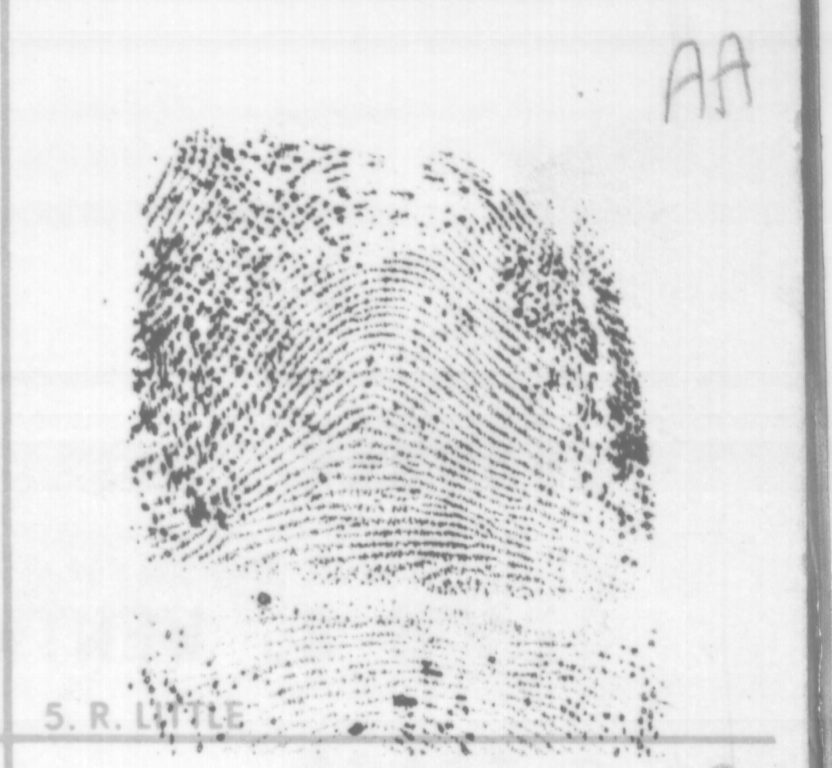 AA
5. R. LITTLE